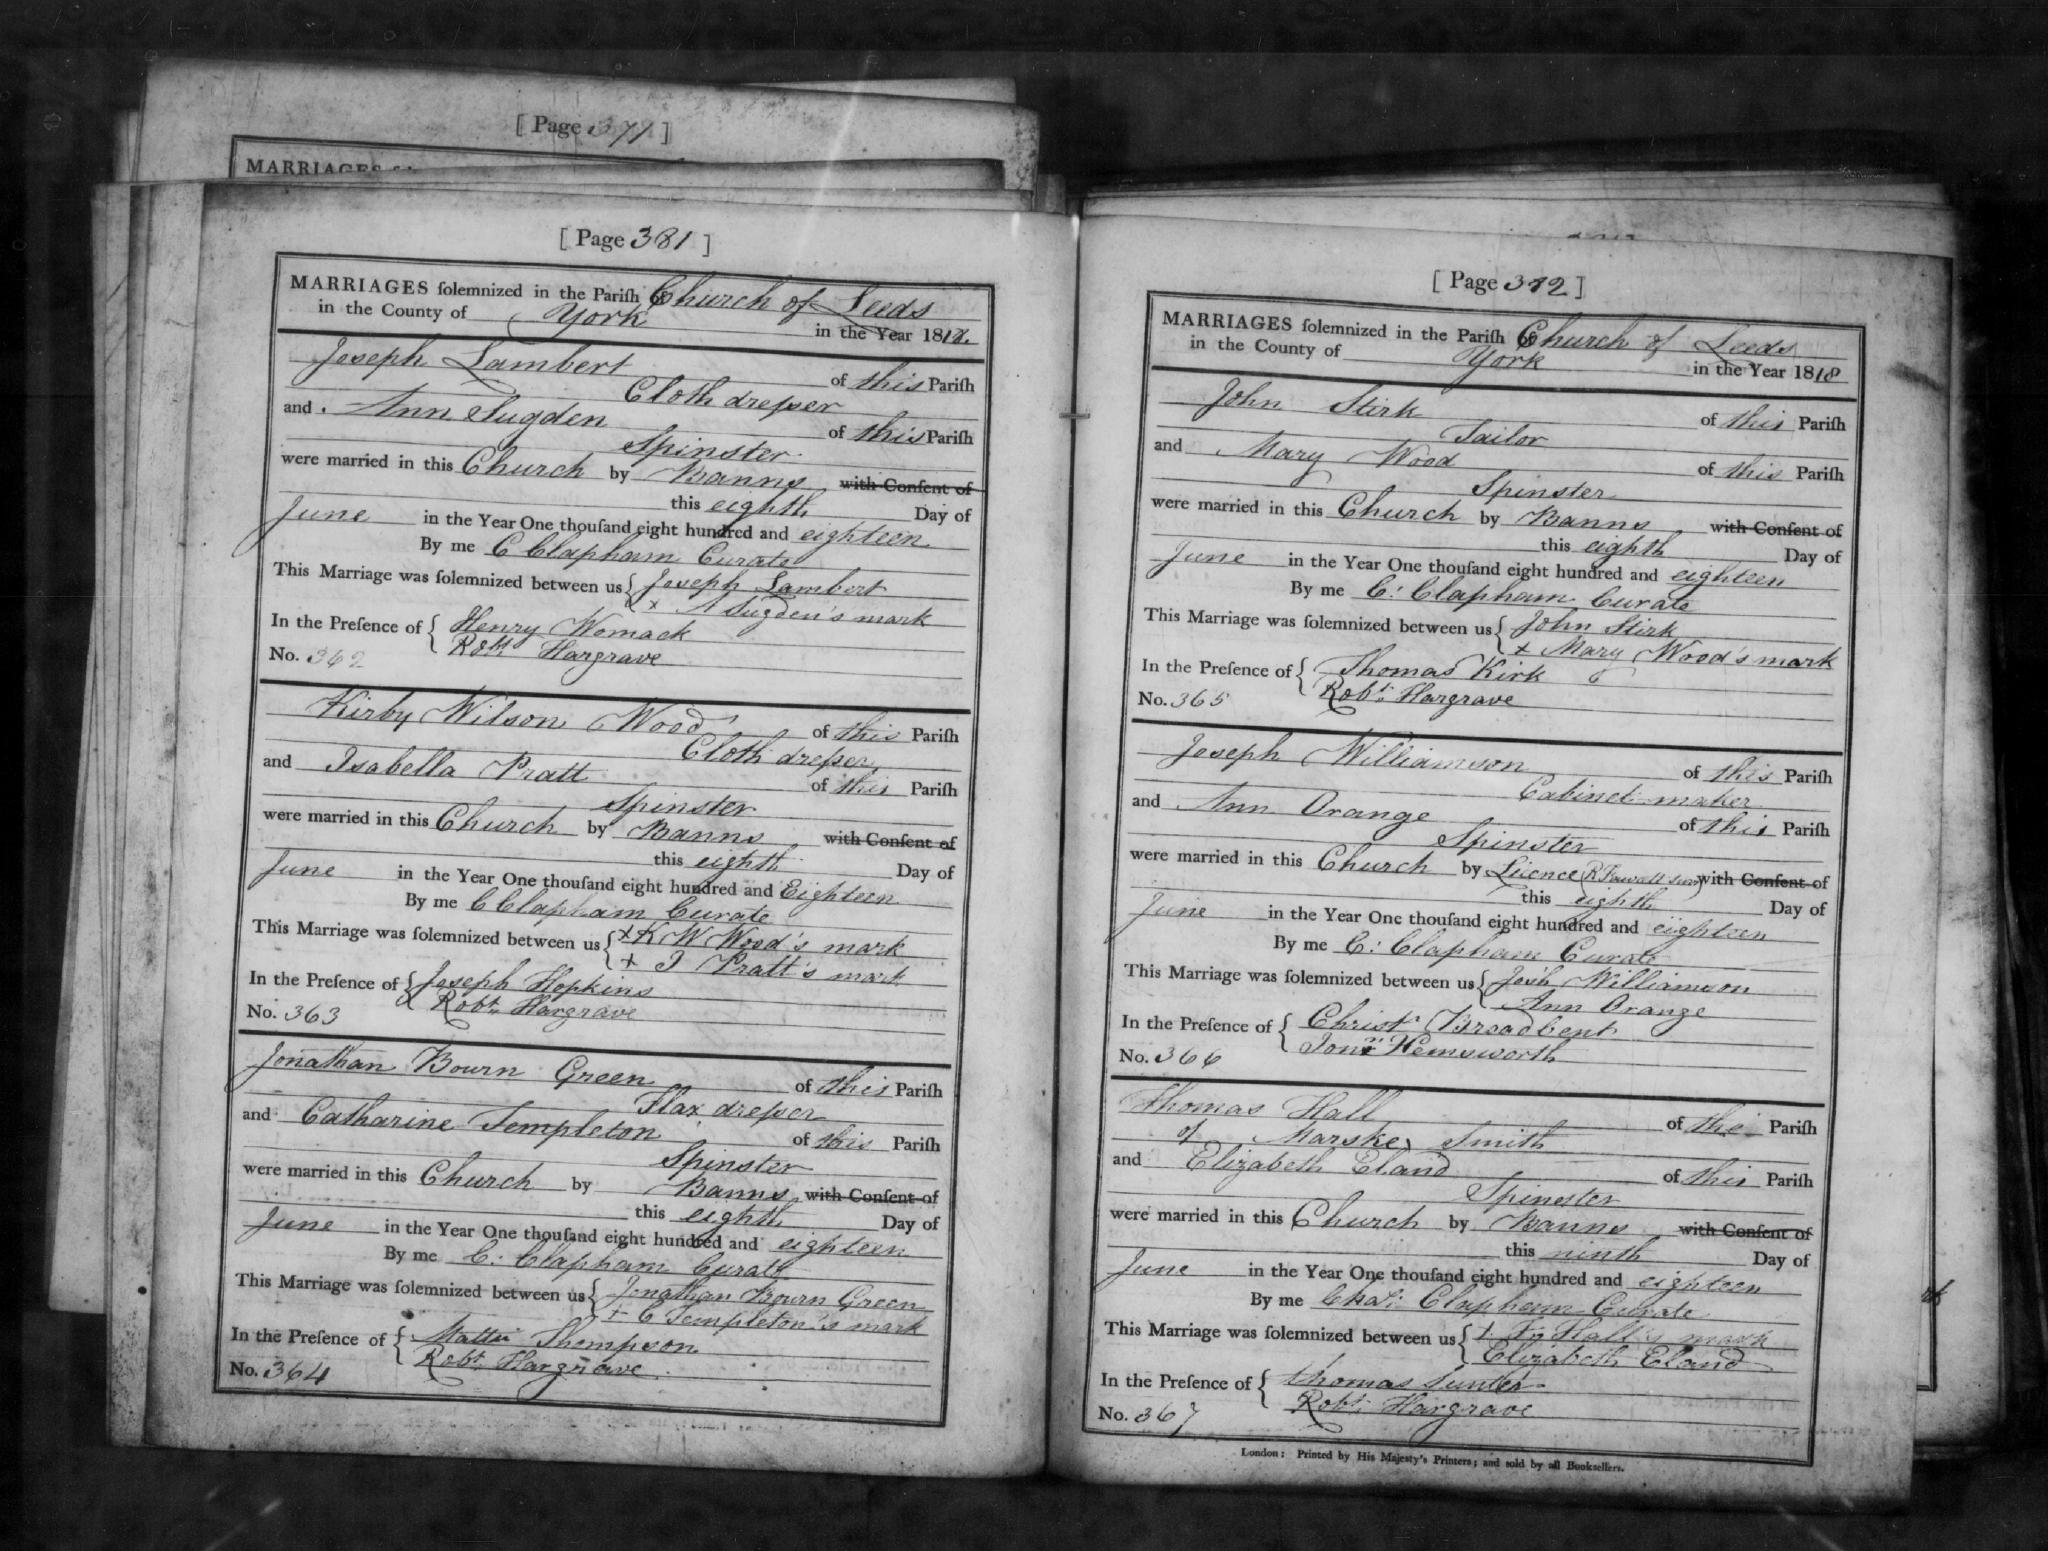 [ Page 371 ]
MARRIAGES
[ Page 381 ]
MARRIAGES ſolemnized in the Pariſh of Church of Leeds
in the County of York in the Year 1818.
Joseph Lambert of this Pariſh
Cloth dreſser
and Ann Sugden of this Pariſh
Spinster
were married in this Church by Banns with Conſent of
this eighth Day of
June in the Year One thouſand eight hundred and eighteen
By me C Clapham Curate
This Marriage was ſolemnized between us { Joseph Lambert
x A Sugden's mark
In the Preſence of { Henry Womack
Robt. Hargrave
No. 362
Kirby Wilson Wood of this Pariſh
Cloth dreſser
and Isabella Pratt of this Pariſh
Spinster
were married in this Church by Banns with Conſent of
this eighth Day of
June in the Year One thouſand eight hundred and Eighteen
By me C Clapham Curate
This Marriage was ſolemnized between us { x K W Wood's mark
x I Pratt's mark
In the Preſence of { Joseph Hopkins
Robt. Hargrave
No. 363
Jonathan Bourn Green of this Pariſh
Flax dreſser
and Catharine Templeton of this Pariſh
Spinster
were married in this Church by Banns with Conſent of
this eighth Day of
June in the Year One thouſand eight hundred and eighteen
By me C: Clapham Curate
This Marriage was ſolemnized between us { Jonathan Bourn Green
+ C Templeton's mark
In the Preſence of { Thompson
Robt. Hargrave
No. 364
[ Page 372 ]
MARRIAGES ſolemnized in the Pariſh of Church of Leeds
in the County of York in the Year 1818
John Stirk of this Pariſh
Tailor
and Mary Wood of this Pariſh
Spinster
were married in this Church by Banns with Conſent of
this eighth Day of
June in the Year One thouſand eight hundred and eighteen
By me C: Clapham Curate
This Marriage was ſolemnized between us { John Stirk
x Mary Wood's mark
In the Preſence of { Thomas Kirk
Robt. Hargrave
No. 365
Joseph Williamson of this Pariſh
Cabinet maker
and Ann Orange of this Pariſh
Spinster
were married in this Church by Licence (R Fawcett Surr) with Conſent of
this eighth Day of
June in the Year One thouſand eight hundred and eighteen
By me C: Clapham Curate
This Marriage was ſolemnized between us { Josh Williamson
Ann Orange
In the Preſence of { Christr Broadbent
Jonn Hemsworth
No. 366
Thomas Hall of the Pariſh
of Marske, Smith
and Elizabeth Eland of this Pariſh
Spinester
were married in this Church by Banns with Conſent of
this ninth Day of
June in the Year One thouſand eight hundred and eighteen
By me Chas. Clapham Curate
This Marriage was ſolemnized between us { + Hall's mark
Elizabeth Eland
In the Preſence of { thomas Sunter
Robt. Hargrave
No. 367
London: Printed by His Majesty's Printers; and sold by all Booksellers.